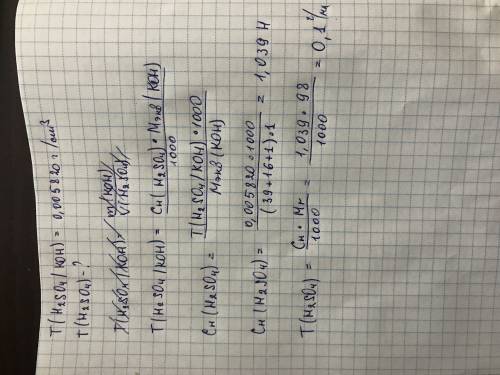 T(H₂SO₄/KOH) = 0,005820 г/см³
T(H₂SO₄) - ?
T(H₂SO₄/KOH) = m(KOH) / V(H₂SO₄)
T(H₂SO₄/KOH) = Cн(H₂SO₄) · Mэкв(KOH) / 1000
Cн(H₂SO₄) = T(H₂SO₄/KOH) · 1000 / Mэкв(KOH)
Cн(H₂SO₄) = 0,005820 · 1000 / (39+16+1) · 1 = 1,039 Н
T(H₂SO₄) = Cн · Mr / 1000 = 1,039 · 98 / 1000 = 0,1 г/мл